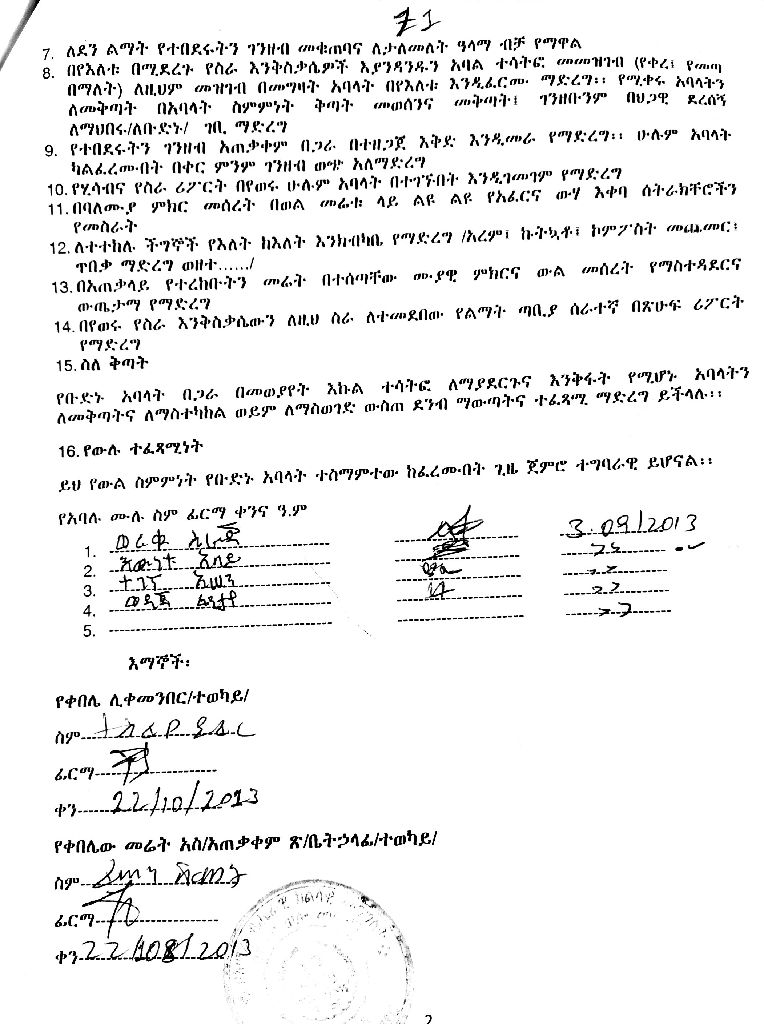 71
7. ለደን ልማት የተበደሩትን ገንዘብ መቁጠባና ለታለመለት ዓላማ ብቻ የማዋል
8. በየእለቱ በሚደረጉ የስራ እንቅስቃሴዎች እያንዳንዱን አባል ተሳትፎ መመዝገብ (የቀረ፤ የመጣ
በማለት) ለዚህም መዝገብ በመግዛት አባላት በየእለቱ እንዲፈርሙ ማድረግ፡፡ የሚቀሩ አባላትን
ለመቅጣት በአባላት ስምምነት ቅጣት መወሰንና መቅጣት፤ ገንዘቡንም በህጋዊ ደረሰኝ
ለማህበሩ/ለቡድኑ/ ገቢ ማድረግ
9. የተበደሩትን ገንዘብ አጠቃቀም በጋራ በተዘጋጀ እቅድ እንዲመራ የማድረግ፡፡ ሁሉም አባላት
ካልፈረሙበት በቀር ምንም ገንዘብ ወጭ አለማድረግ
10. የሂሳብና የስራ ሪፖርት በየወሩ ሁሉም አባላት በተገኙበት እንዲገመገም የማድረግ
11. በባለሙያ ምክር መሰረት በወል መሬቱ ላይ ልዩ ልዩ የአፈርና ውሃ እቀባ ሰትራክቸሮችን
የመስራት
12. ለተተከሉ ችግኞች የእለት ከእለት እንክብካቤ የማድረግ /አረም፣ ኩትኳቶ፣ ኮምፖስት መጨመር፣
ጥበቃ ማድረግ ወዘተ....../
13. በአጠቃላይ የተረከቡትን መሬት በተሰጣቸው ሙያዊ ምክርና ውል መሰረት የማስተዳደርና
ውጤታማ የማድረግ
14. በየወሩ የስራ እንቅስቃሴውን ለዚህ ስራ ለተመደበው የልማት ጣቢያ ሰራተኛ በጽሁፍ ሪፖርት
የማድረግ
15. ስለ ቅጣት
የቡድኑ አባላት በጋራ በመወያየት እኩል ተሳትፎ ለማያደርጉና እንቅፋት የሚሆኑ አባላትን
ለመቅጣትና ለማስተካከል ወይም ለማስወገድ ውስጠ ደንብ ማውጣትና ተፈጻሚ ማድረግ ይችላሉ፡፡
16. የውሉ ተፈጻሚነት
ይህ የውል ስምምነት የቡድኑ አባላት ተስማምተው ከፈረሙበት ጊዜ ጀምሮ ተግባራዊ ይሆናል፡፡
የአባሉ ሙሉ ስም ፊርማ ቀንና ዓ.ም
1. ወራቁ 3.09/2013
2.
3. ተገኘ
4.
5.
እማኞች፡
የቀበሌ ሊቀመንበር/ተወካይ/
ስም
ፊርማ
ቀን 22/10/2013
የቀበሌው መሬት አስ/አጠቃቀም ጽ/ቤትኃላፊ/ተወካይ/
ስም
ፊርማ
ቀን 2013
2